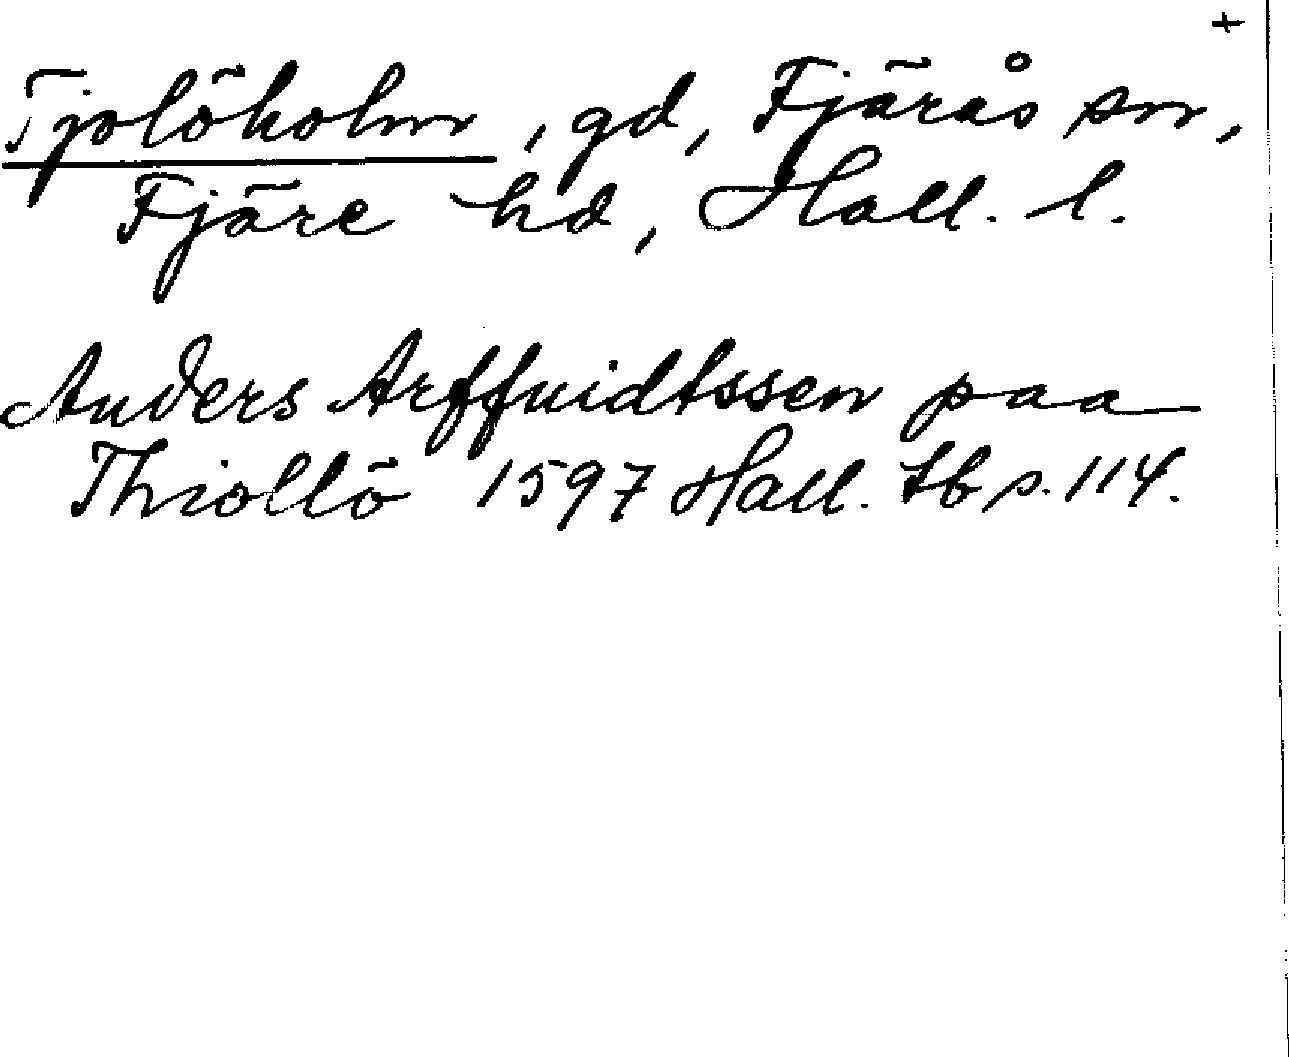 +
Tjolöholm, gd, Fjärås sn,
Fjäre hd, Hall. l.
Anders Arffuidtssen paa
Thiollö 1597 Hall. tb s. 114.